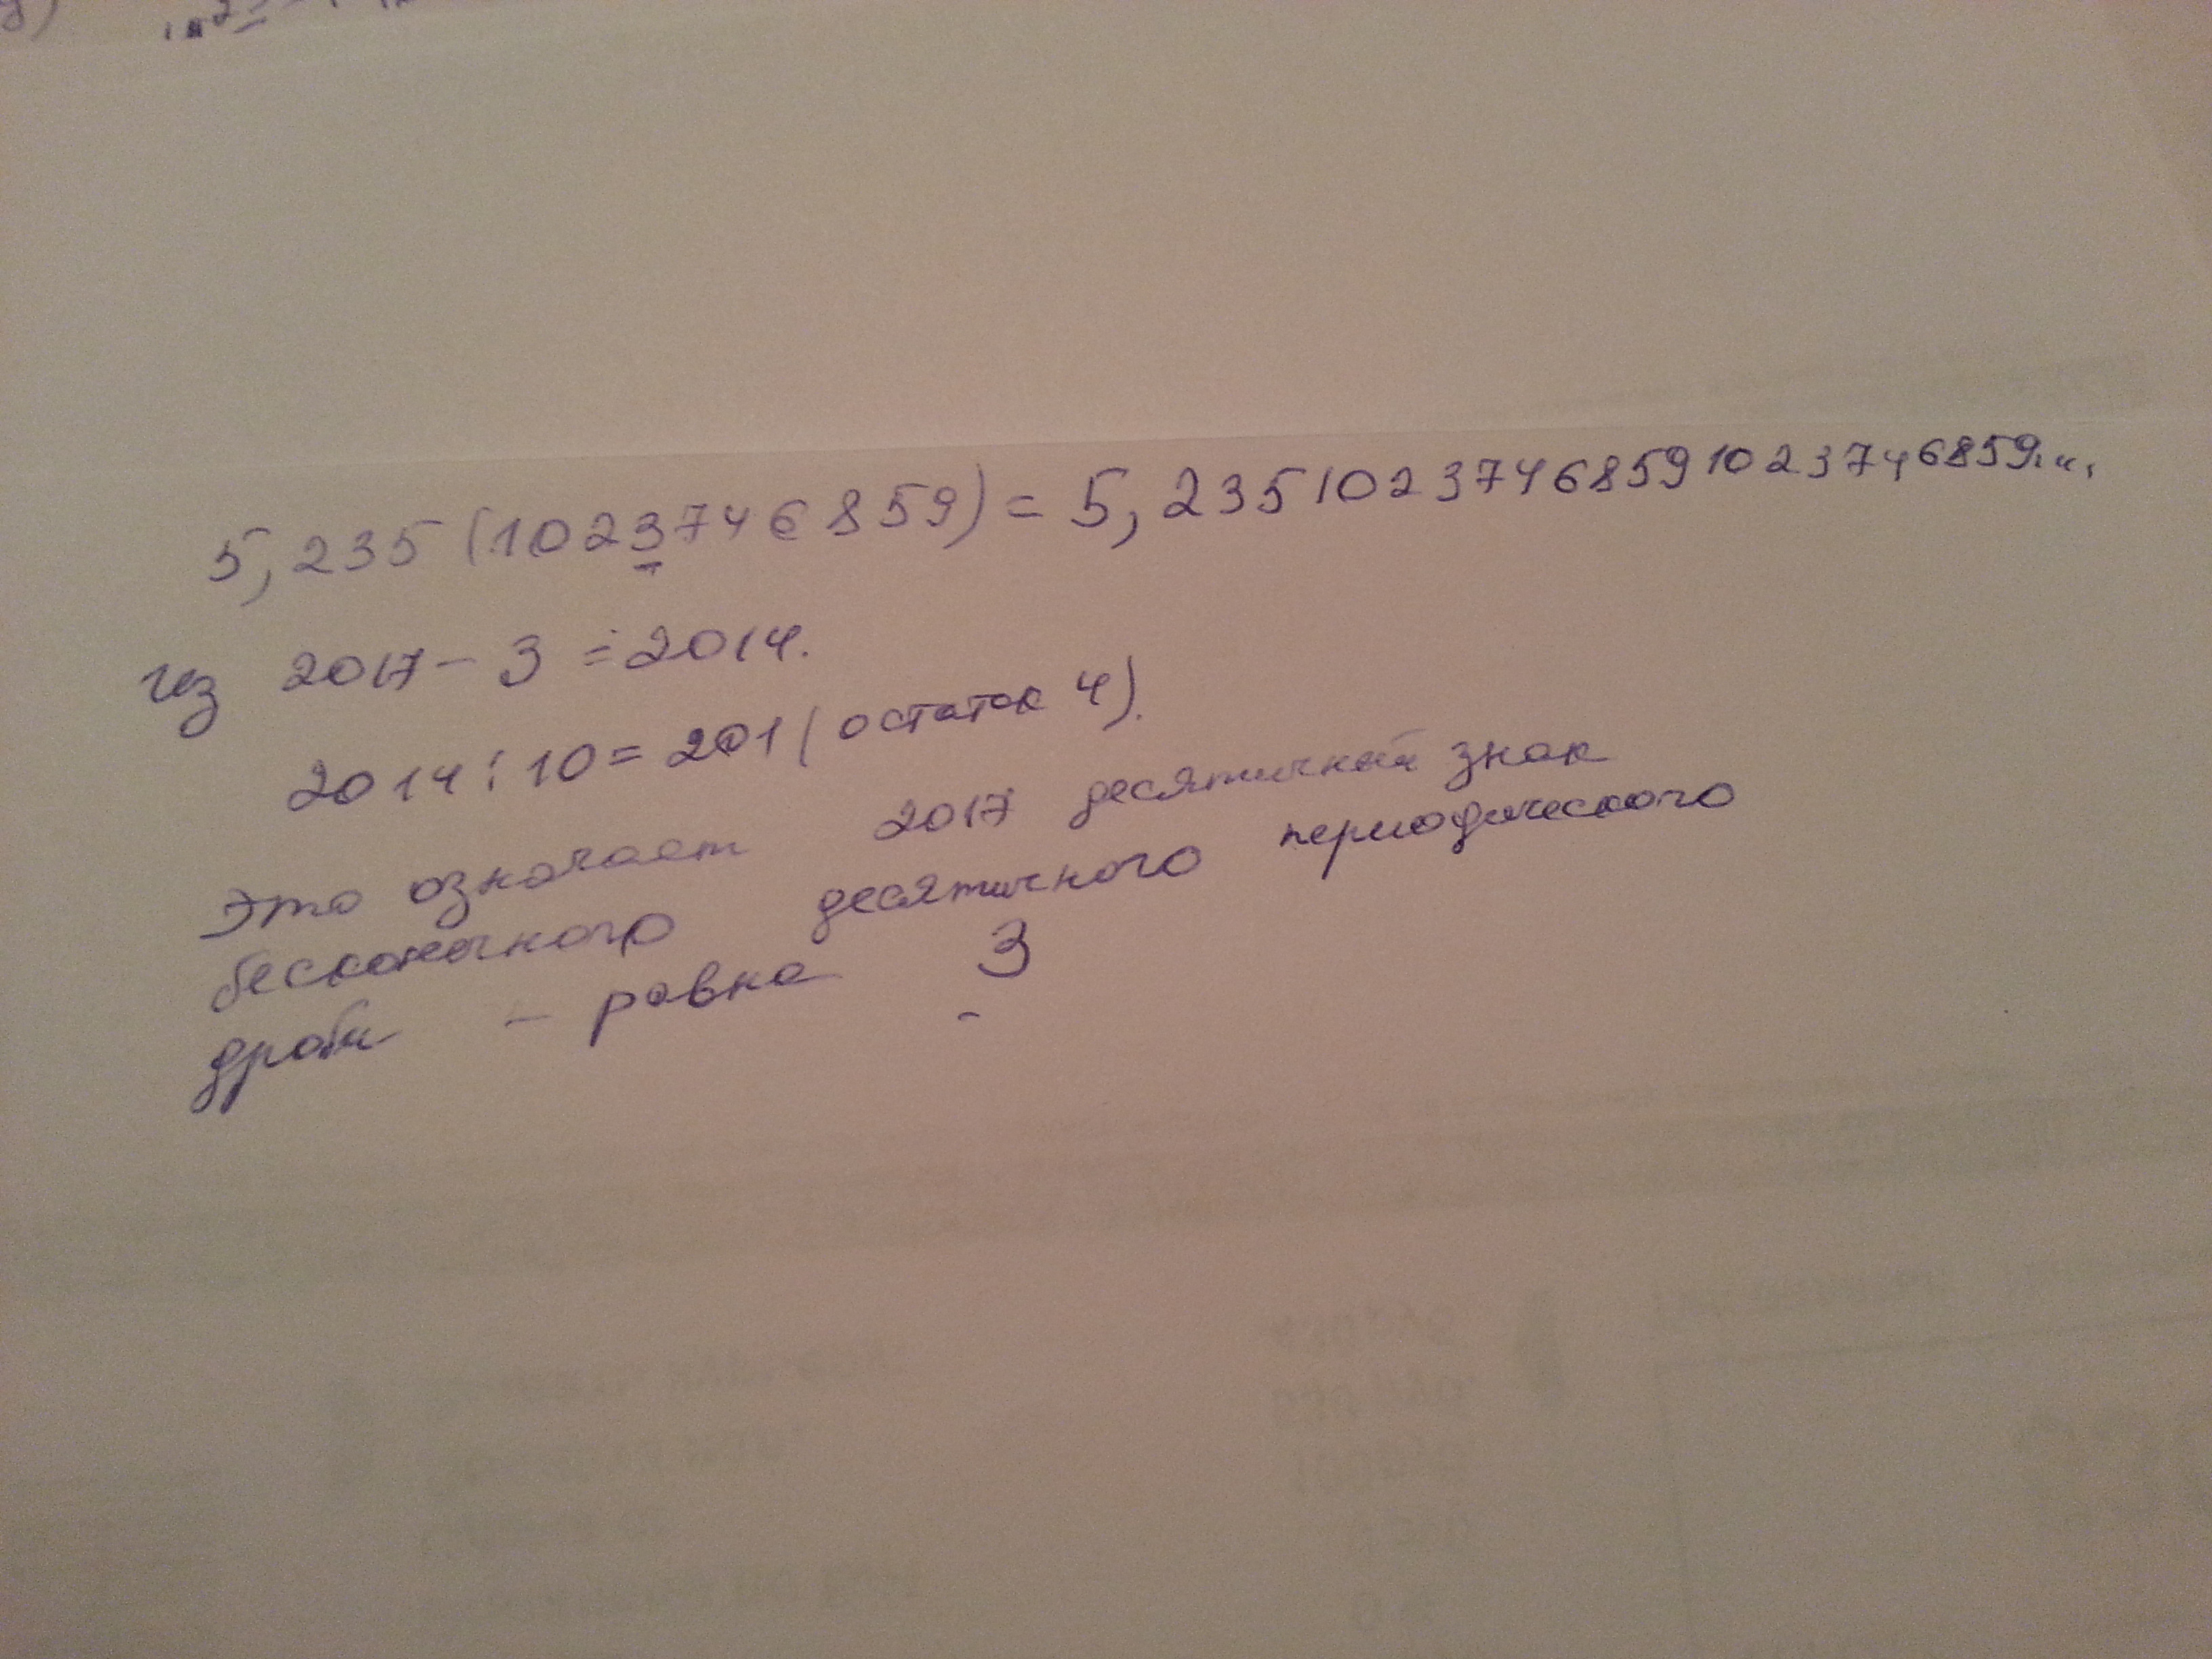 5,235(1023746859)=5,23510237468591023746859...
Из 2017-3=2014.
2014:10=201(остаток 4).
Это означает 2017 десятичный знак
бесконечного десятичного периодического
дроби - равна 3